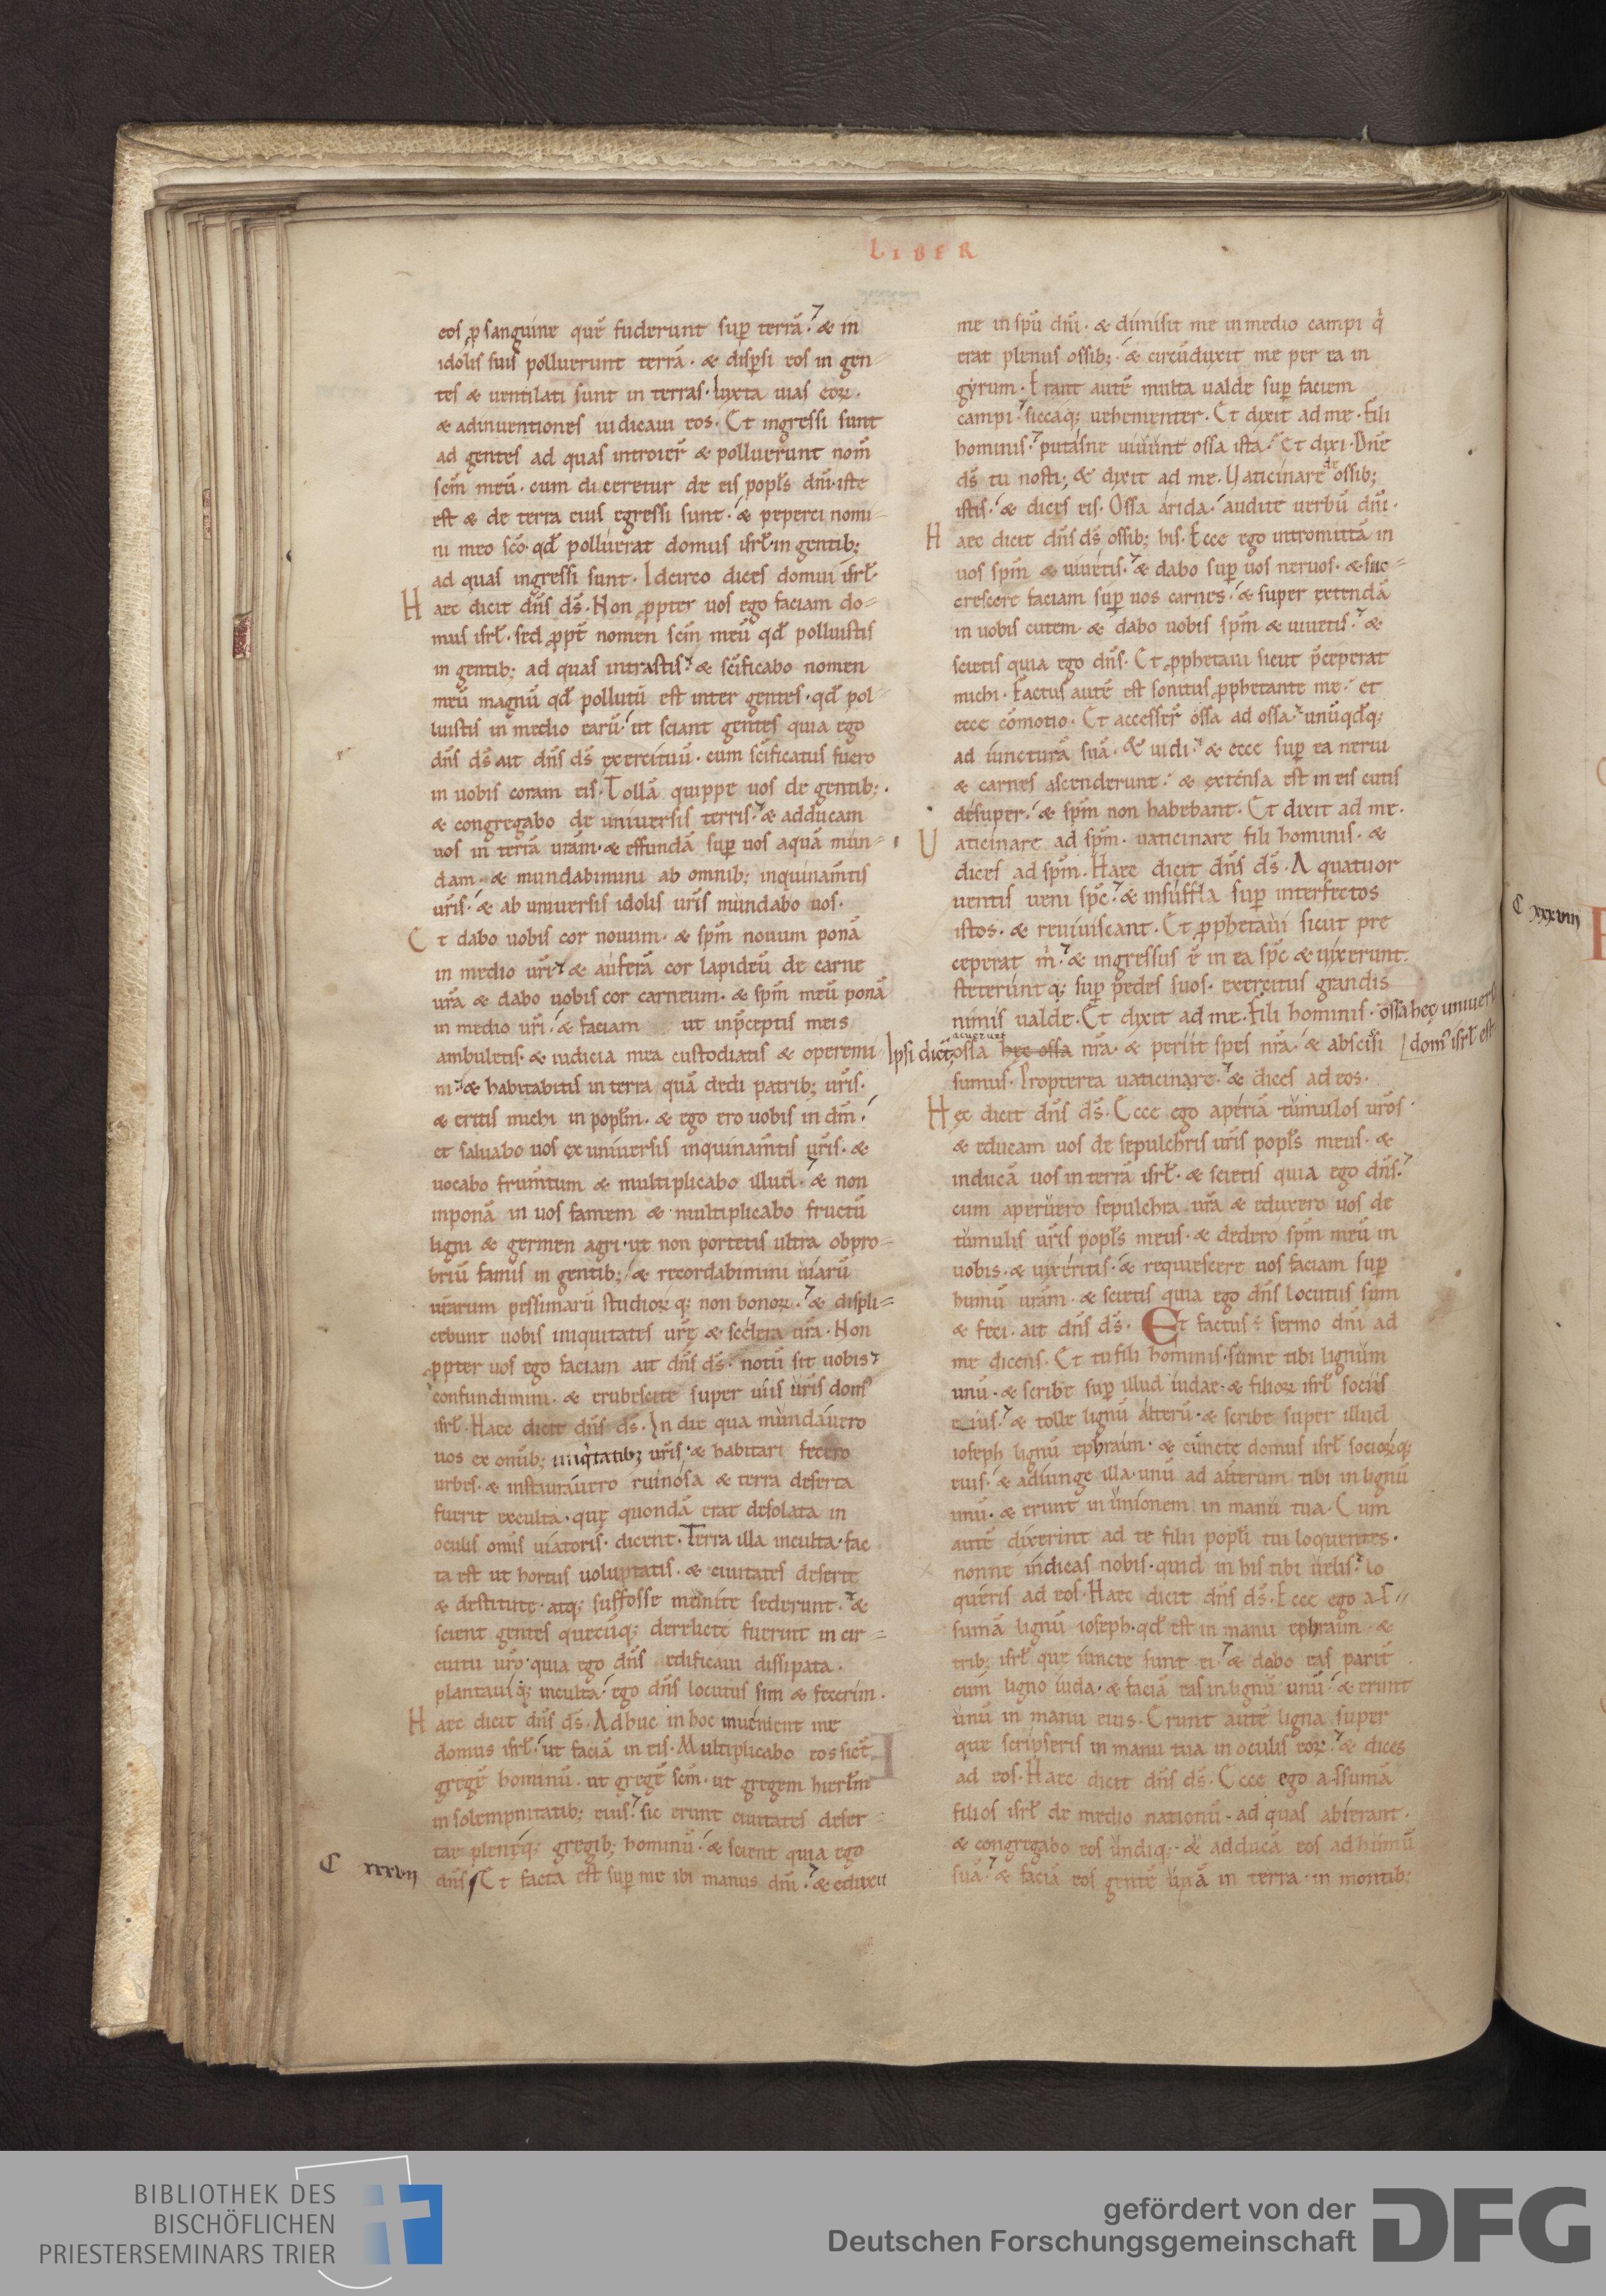 LIBER
eos ꝓ sanguine quē fuderunt suꝑ terrā. & in
idolis suis polluerunt terrā. & dispsi eos in gen
tes & uentilati sunt in terras. Iuxta uias eoꝝ.
& adinuentiones iudicaui eos. Et ingressi sunt
ad gentes ad quas introier̄ & polluerunt nom̄
scm̄ meū. cum diceretur de eis popl̄s dnī. iste
est & de terra eius egressi sunt. & peperci nomi
ni meo sc̄o. qd̄ polluerat domus isrl̄. in gentib;
ad quas ingressi sunt. Idcirco dices domui isrl̄.
Haec dicit dn̄s ds̄. Non ꝓpter uos ego faciam do=
mus isrl̄. sed ꝓpt̄ nomen scm̄ meū qd̄ polluistis
in gentib; ad quas intrastis. & scīficabo nomen
meū magnū qd̄ pollutū est inter gentes. qd̄ pol
luistis in medio earū. ut sciant gentes quia ego
dn̄s ds̄ ait dn̄s ds̄ exercituū. cum scīficatus fuero
in uobis coram eis. Tollā quippe uos de gentib;.
& congregabo de uniuersis terris. & adducam
uos in terrā urām. & effundā suꝑ uos aquā mun=
dam. & mundabimini ab omnib; inquinam̄tis
ur̄is. & ab uniuersis idolis ur̄is mundabo uos.
Et dabo uobis cor nouum. & spm̄ nouum ponā
in medio ur̄i. & auferā cor lapideū de carne
ur̄a & dabo uobis cor carneum. & spm̄ meū ponā
in medio ur̄i. & faciam ut inp̄ceptis meis
ambuletis. & iudicia mea custodiatis & operemi
ni. & habitabitis in terra quā dedi patrib; ur̄is.
& eritis michi in popl̄m. & ego ero uobis in dm̄.
et saluabo uos ex uniuersis inquinam̄tis ur̄is. &
uocabo frum̄tum & multiplicabo illud. & non
inponā in uos famem & multiplicabo fructū
ligni & germen agri. ut non portetis ultra obpro=
briū famis in gentib; & recordabimini uiarū
ur̄arum pessimarū studioꝝ q; non bonoꝝ. & displi=
cebunt uobis iniquitates ur̄ę & scelera ur̄a. Non
ꝓpter uos ego faciam ait dn̄s ds̄. notū sit uobis
confundimini. & erubescite super uiis ur̄is dom̄
isrl̄. Haec dicit dn̄s ds̄. In die qua mundauero
uos ex om̄ib; iniqtatib; ur̄is. & habitari fecero
urbes. & instaurauero ruinosa & terra deserta
fuerit exculta. quę quondā erat desolata in
oculis om̄is uiatoris. dicent. Terra illa inculta. fac
ta est ut hortus uoluptatis. & ciuitates desertę
& destitutę. atq; suffosse menite sederunt. &
scient gentes quecūq; derelicte fuerint in cir=
cuitu ur̄o. quia ego dn̄s edificaui dissipata.
plantauiq; inculta. ego dn̄s locutus sim & fecerim.
Haec dicit dn̄s ds̄. Adhuc in hoc inuenient me
domus isrl̄. ut faciā in eis. Multiplicabo eos sict̄
gregē hominū. ut gregē scm̄. ut gregem hierl̄m
in solempnitatib; eius. sic erunt ciuitates deser=
tae plenęq; gregib; hominū. & scient quia ego
C xxxvii dn̄s Et facta est suꝑ me ibi manus dnī. & eduxit
me in spū dnī. & dimisit me in medio campi q̄
erat plenus ossib;. & circūduxit me per ea in
gyrum. Erant autē multa ualde suꝑ faciem
campi. siccaq; uehementer. Et dixit ad me. Fili
hominis. putasne uiuunt ossa ista. Et dixi. Dn̄e
ds̄ tu nosti; & dixit ad me. Uaticinare de ossib;
istis. & dices eis. Ossa arida. audite uerbū dnī.
Haec dicit dn̄s ds̄ ossib; his. Ecce ego intromittā in
uos spm̄ & uiuetis. & dabo suꝑ uos neruos. & suc=
crescere faciam suꝑ uos carnes. & super extendā
in uobis cutem. & dabo uobis spm̄ & uiuetis. &
scietis quia ego dn̄s. Et ꝓphetaui sicut p̄ceperat
michi. Factus autē est sonitus ꝓphetante me. et
ecce cōmotio. Et accesser̄ ossa ad ossa. unūqd̄q;
ad iuncturā suā. & uidi. & ecce suꝑ ea nerui
& carnes ascenderunt. & extensa est in eis cutis
desuper. & spm̄ non habebant. Et dixit ad me.
Uaticinare ad spm̄. uaticinare fili hominis. &
dices ad spm̄. Haec dicit dn̄s ds̄. A quatuor
uentis ueni spc̄. & insuffla suꝑ interfectos
istos. & reuiuiscant. Et ꝓphetaui sicut pre
ceperat m̄. & ingressus ē in ea spc̄ & uixerunt.
steteruntq; suꝑ pedes suos. exercitus grandis
nimis ualde. Et dixit ad me. Fili hominis. ossa hec uniuersa
Ipsi dicēt ossa hec ossa nr̄a. & periit spes nr̄a. & abscisi dom̄ isrl̄ est
sumus. Propterea uaticinare. & dices ad eos.
Hęc dicit dn̄s ds̄. Ecce ego aperiā tumulos ur̄os.
& educam uos de sepulchris ur̄is popl̄s meus. &
inducā uos in terrā isrl̄. & scietis quia ego dn̄s.
cum aperuero sepulchra ur̄a & eduxero uos de
tumulis ur̄is popl̄s meus. & dedero spm̄ meū in
uobis. & uixeritis. & requiescere uos faciam suꝑ
humū ur̄am. & scietis quia ego dn̄s locutus sum
& feci. ait dn̄s ds̄. Et factus ē sermo dnī ad
me dicens. Et tu fili hominis. sume tibi lignum
unū. & scribe suꝑ illud iudae. & filioꝝ isrl̄ sociis
eius. & tolle lignū alterū. & scribe super illud
ioseph lignū ephraim. & cunctę domus isrl̄ socioꝝq;
eius. & adiunge illa. unū ad alterum tibi in lignū
unū. & erunt in unionem in manu tua. Cum
autē dixerint ad te filii popl̄i tui loquentes.
nonne indicas nobis. quid in his tibi uelis. lo
queris ad eos. Haec dicit dn̄s ds̄. Ecce ego as
sumā lignū ioseph. qd̄ est in manu ephraim. &
trib; isrl̄ que iuncte sunt ei. & dabo eas parit̄
cum ligno iuda. & faciā eas in lignū unū. & erunt
unū in manu eius. Erunt autē ligna super
que scripseris in manu tua in oculis eoꝝ. & dices
ad eos. Haec dicit dn̄s ds̄. Ecce ego assumā
filios isrl̄ de medio nationū. ad quas abierant.
& congregabo eos undiq;. & adducā eos ad humū
suā. & faciā eos gentē unā in terra. in montib;
C xxxviii
BIBLIOTHEK DES
BISCHÖFLICHEN
PRIESTERSEMINARS TRIER
gefördert von der
Deutschen Forschungsgemeinschaft
DFG